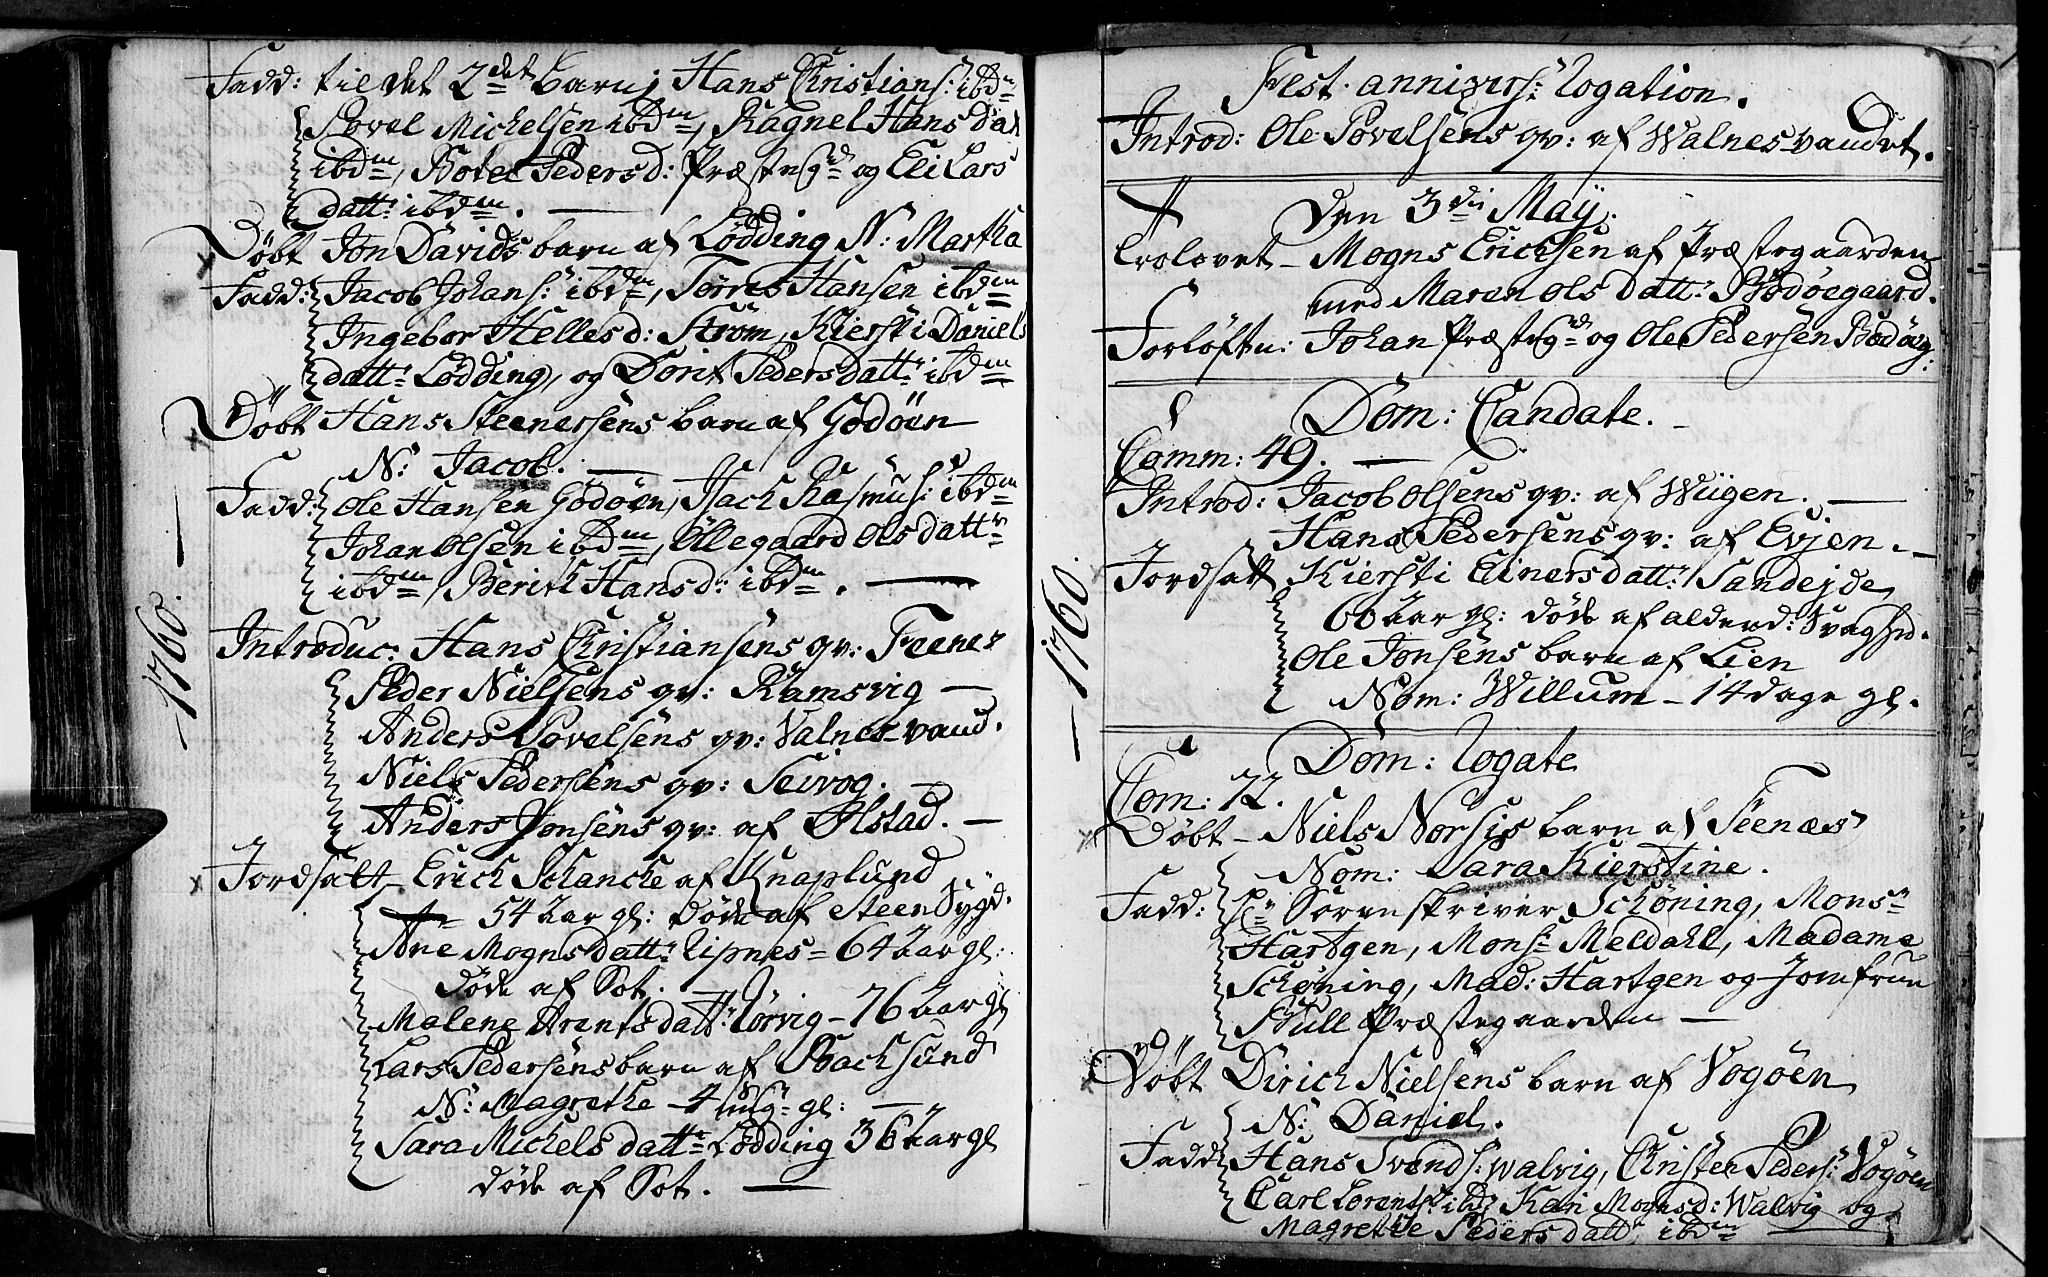 Fadd: til det 2det barn; Hans Christians: ibdm
Povel Michelsen ibdm, Ragnel Hans dat
ibdm, Botel Pedersd: Præsteg: og Eli Lars
datt: ibdm.
Döbt Jon Davids barn af Lödding N: Martha
Fadd: Jacob Johans: ibdm, Törres Hansen ibdm
Ingebor Hellesd: Ström, Kiersti Daniels
datt: Lödding, og Dorit Pedersdatt: ibdm
Döbt Hans Steenersens barn af Godöen
N: Jacob.
Fadd: Ole Hansen Godöen, Isach Rasmus: ibdm
Johan Olsen ibdm, Ollegaard Olsdattr
ibdm, Berith Hansd: ibdm.
-1760.-
Introduc: Hans Christiansens qv: Feenes
Peder Nielsens qv: Ramsvig
Anders Povelsens qv: Valnes-vand.
Niels Pedersens qv: Seivog.
Anders Jonsens qv: af Ølstad.
Jordsatt Erich Schancke af Knaplund
54 Aar gl: döde af Steen Sygd.
Ane Mognsdatt: Lipnes = 64 Aar gl:
döde af Sot.
Malene Arentsdatt: Lörvig - 76 Aar gl
Lars Pedersens barn af Bachsund
N: Magrethe - 4 ug: gl:
Sara Michelsdatt: Lödding 36 Aar gl
döde af Sot.
Fest. annivers: Rogation.
Introd: Ole Povelsens qv: af Walnes-vandet.
Den 3dii Maÿ.
Trolovet - Mogns Erichsen af Præstegaarden
med Maren Olsdatt: Bodöegaard.
Forlöftn: Johan Præsteg: og Ole Pedersen Bodöeg:
Dom: Cantate.
Comm: 49.
Introd: Jacob Olsens qv: af Wiigen.
Hans Pedersens qv: af Evjen.
-1760.
Jordsatt Kiersti Einersdatt: Sandejde
60 Aar gl: döde af alderd: Svaghd.
Ole Jonsens barn af Lien
Nom: Willum - 14 dage gl.
Dom: Rogate
Com: 72.
Döbt - Niels Norsis barn af Feenæs
Nom: Sara Kierstine.
Fadd: Sorenskriver Schöning, Monsr
Hartgen, Monsr Meldahl, Madame
Schöning, Mad: Hartgen og Jomfrue
Præstegaarden
Döbt Dirich Nielsens barn af Vogöen
N: Daniel.
Fadd: Hans Svends: Walvig, Christen Peders: Vogöen
Carl Lorents: ibd, Kari Mognsd: Walvig og
Magrethe Pedersdatt: ibdm